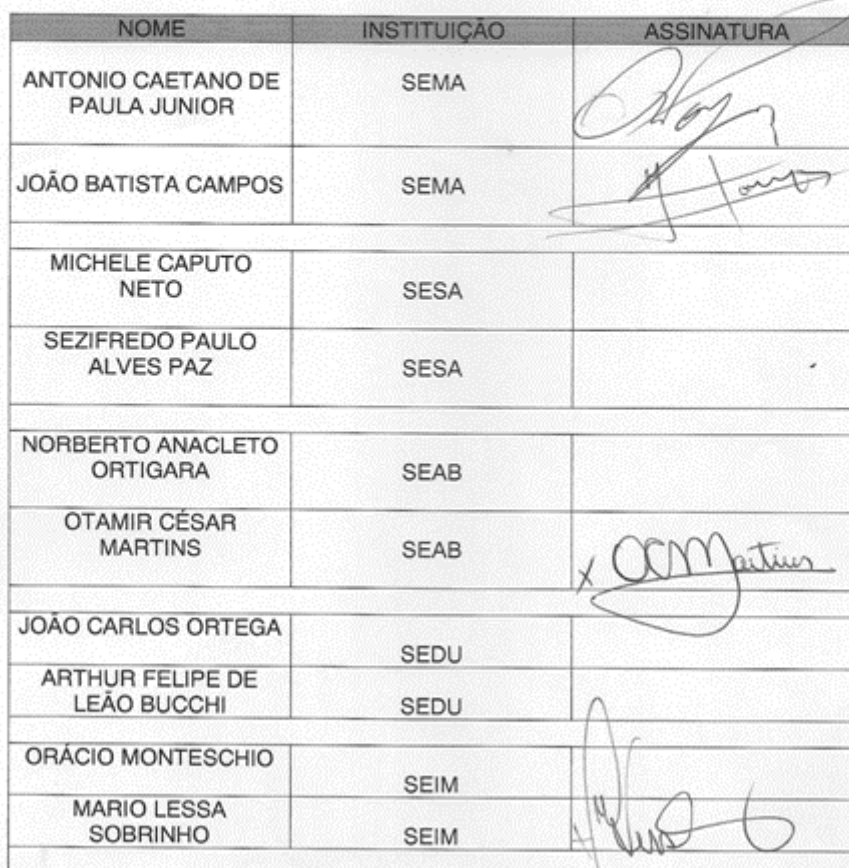 NOME INSTITUIÇÃO ASSINATURA
ANTONIO CAETANO DE
PAULA JUNIOR SEMA
JOÃO BATISTA CAMPOS SEMA
MICHELE CAPUTO
NETO SESA
SEZIFREDO PAULO
ALVES PAZ SESA
NORBERTO ANACLETO
ORTIGARA SEAB
OTAMIR CÉSAR
MARTINS SEAB x OCMartins
JOÃO CARLOS ORTEGA
SEDU
ARTHUR FELIPE DE
LEÃO BUCCHI SEDU
ORÁCIO MONTESCHIO
SEIM
MARIO LESSA
SOBRINHO SEIM